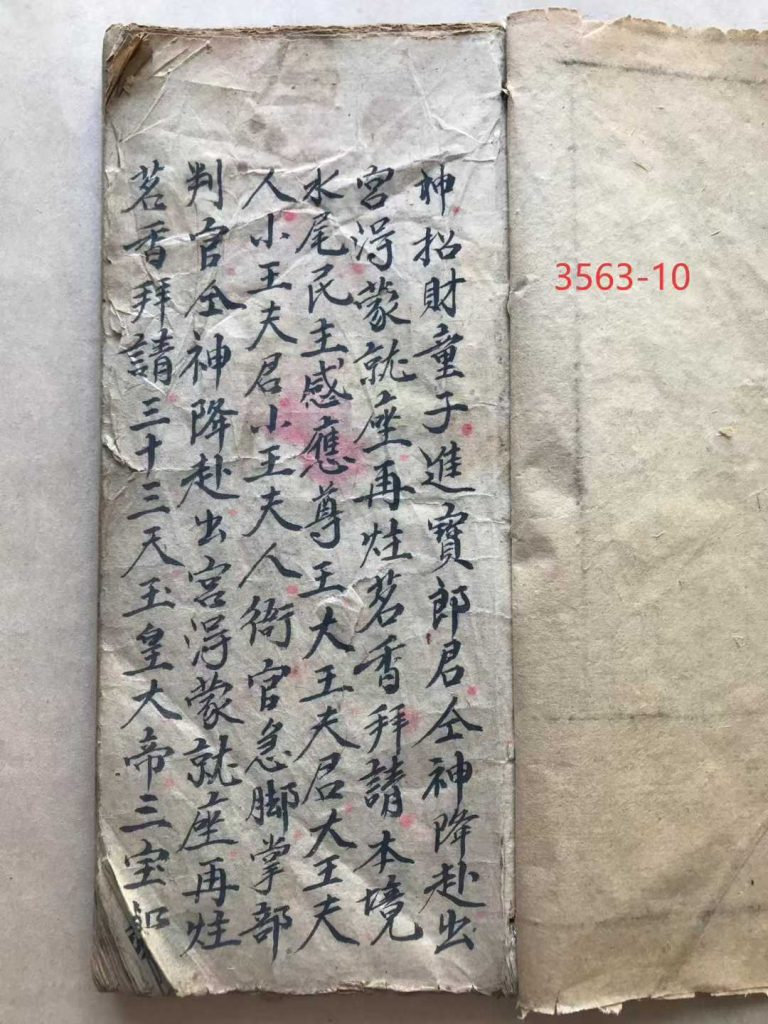 神招財童子進寳郎君仝神降赴出
宫淂蒙就座再炷茗香拜請本境
水尾民主感應尊王大王夫君大王夫
人小王夫君小王夫人衙官急脚掌部
判官仝神降赴出宫淂蒙就座再炷
茗香拜請三十三天玉皇大帝三宝
3563-10